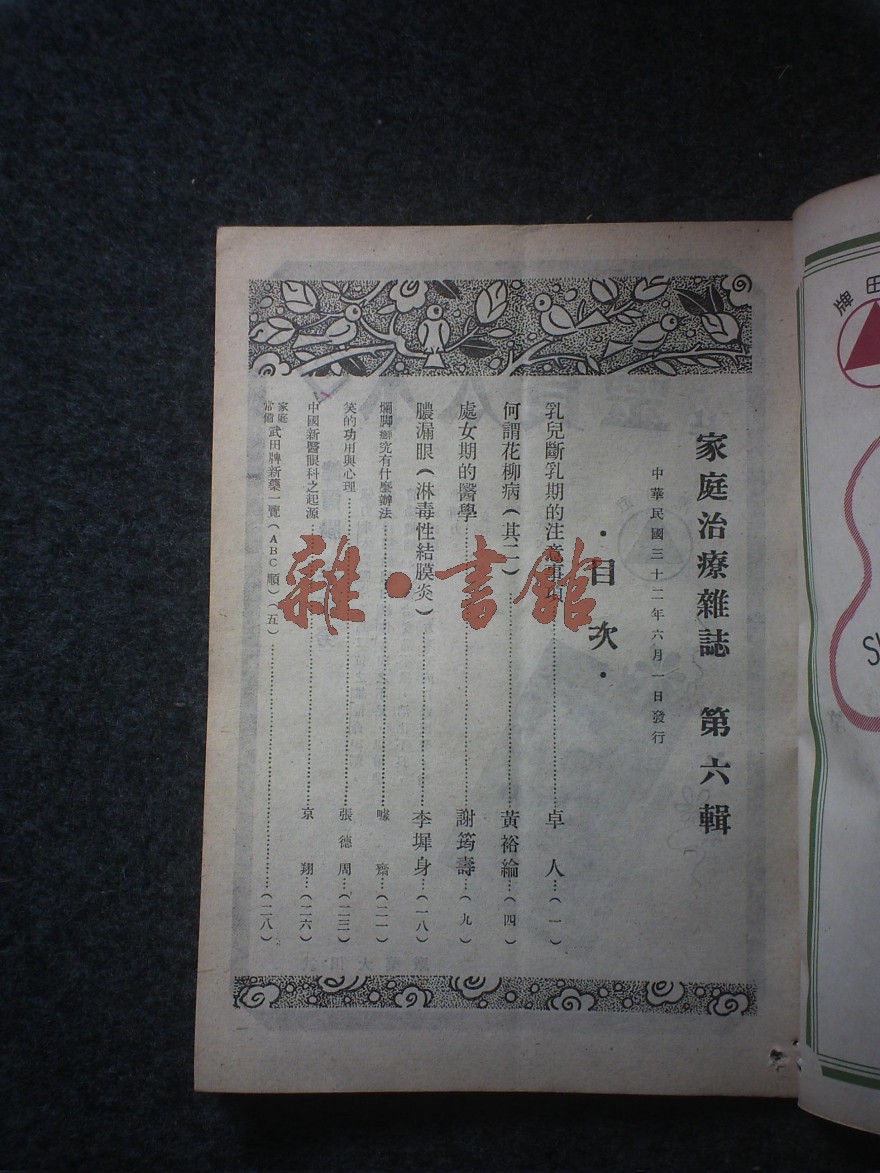 家庭治療雜誌 第六輯
中華民國三十二年六月一日發行
·目次·
乳兒斷乳期的注意事項……卓人…(一)
何謂花柳病(其二)……黃裕綸…(四)
處女期的醫學……謝筠壽…(九)
膿漏眼(淋毒性結膜炎)……李墀身…(一八)
爛脚究有什麼辦法……齋…(二一)
笑的功用與心理……張德周…(二三)
中國新醫眼科之起源……京翔…(二六)
家庭常備武田牌新藥一覽(ABC順)(五)……(二八)
雜·書館
牌田